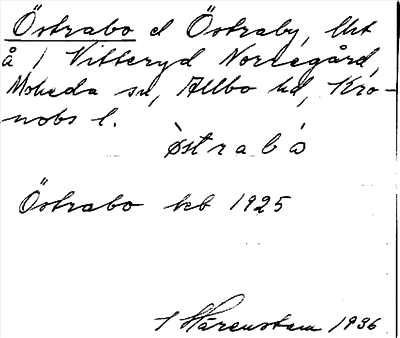 Östrabo el Östraby, lht
å / Vitteryd Norregård,
Moheda sn, Allbo hd, Kro-
nobs l.
östrabo
Östrabo kb 1925
Härenstam 1936